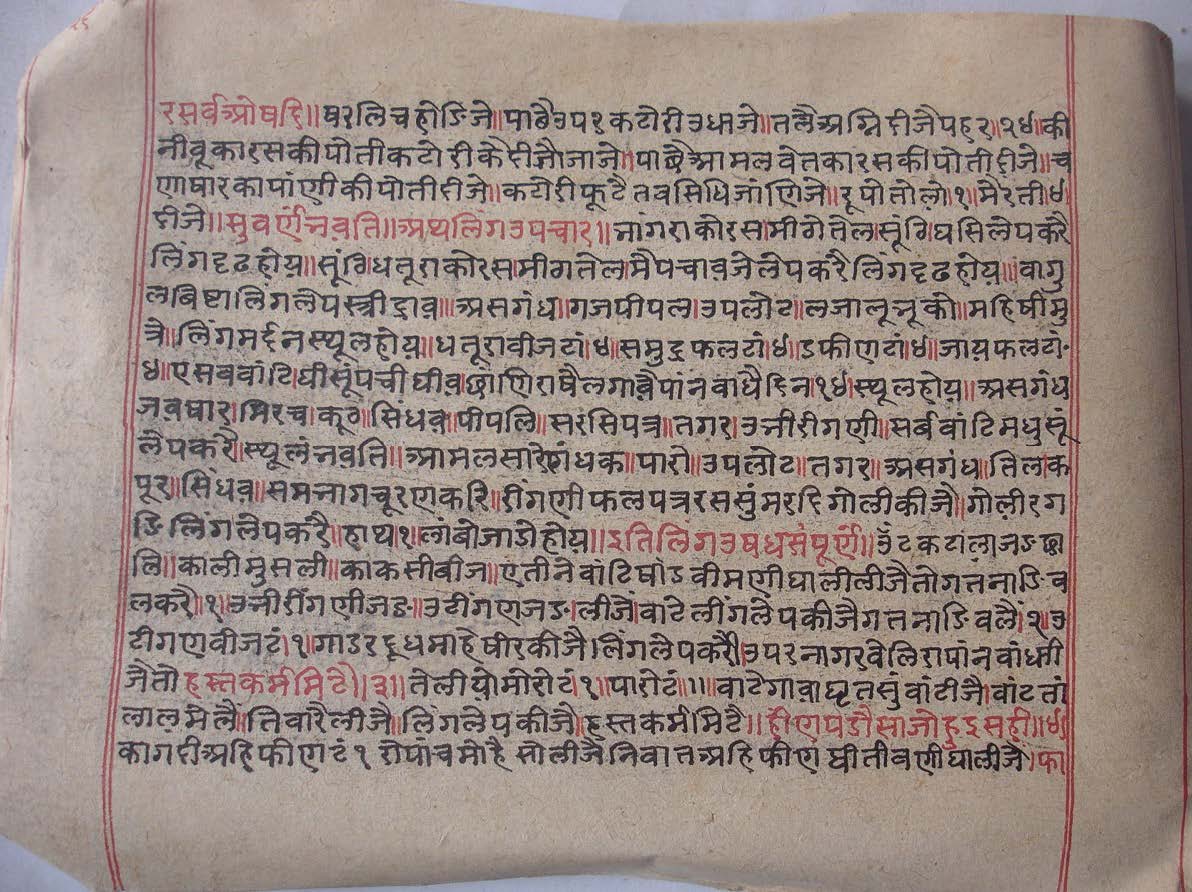 २६
रसर्वओषदि॥षरलिचहोडिजे॥पाछैउप१कटोरीउधाजे॥तलैअग्निदीजैपहर॥१४॥की
नीबूकारसकीपोतीकटोरीकेदीजौजाजे॥पाछैआमलवेतकारसकीपोतीदीजे॥च
णाषारकापांणीकीपोतीदीजे॥कटोरीफूटैतवसिधिजांणिजे॥रूपोतोलो॥१॥मैरती॥४
दीजे॥सुवर्णंभवति॥अथलिंगउपचार॥भांगराकोरस॥मीठोतेल॥सूंठिघसिलेपकरै
लिंगदृढहोय॥सूंठिधतूराकोरस॥मीठातेलमैपचावजेलेपकरैलिंगदृढहोय॥वागु
लबिष्टालिंगलेपस्त्रीद्राव॥असगंध॥गजपीपल॥उपलोट॥लजालूभूको॥महिषीमु
त्रे॥लिंगमर्दनस्थूलहोय॥धतूरावीजटां॥४॥समुद्रफलटां॥४॥डफीणटां॥४॥जायफलटां॰
४॥एसबवांटिघीसूंपचीघीवछांणिराषैलगावैपांनबाधैदिन॥१४॥स्थूलहोय॥असगंध
जवषार॥मिरच॥कूठ॥सिंधव॥पीपलि॥सरंसिपत्र॥तगर॥उभीरीगणी॥सर्बवांटिमधुसूं
लेपकरै॥स्थूलंभवति॥आमलसारोगंधक॥पारो॥उपलोट॥तगर॥असगंध॥तिल॥क
पूर॥सिंधव॥समभागचूरणकरि॥रींगणीफलपत्ररससुंमरदिगोलीकीजै॥गोलीरग
डिलिंगलेपकरै॥हाथ॥१॥लांबोजाडोहोय॥इतिलिंगउषधसंपूर्णं॥उँटकटालाजडछा
लि॥कालीमुसली॥काकसीबीज॥एतीनेवांटिषांडवीमणीघालीलीजैतोगतनाडिव
लकरै॥१॥उभीरींगणीजड॥उटींगणजड॥लीजै॥वाटेलींगलेपकीजैगतनाडिवलै॥२॥उ
टीगणवीजटं॥१॥गाडरदूधमाहेषीरकीजै॥लिंगलेपकरै॥उपरनागरवेलिरापांनबांधणी
जैतोहस्तकर्ममिटै॥३॥तेलीयोमोरोटं॥१॥पारोटं॥॥॥वाटेगावाघृतसुंवांटीजै॥वांटतां
लालमेलै॥तिवारैलीजै॥लिंगलेपकीजै॥हस्तकर्ममिटै॥हीणपडौसाजोहुइसही॥४॥
कागदीअहिफीणटं१रोपांचमोहैसोलीजैनिवातअहिफीणथीतीवणीघालीजै॥फा